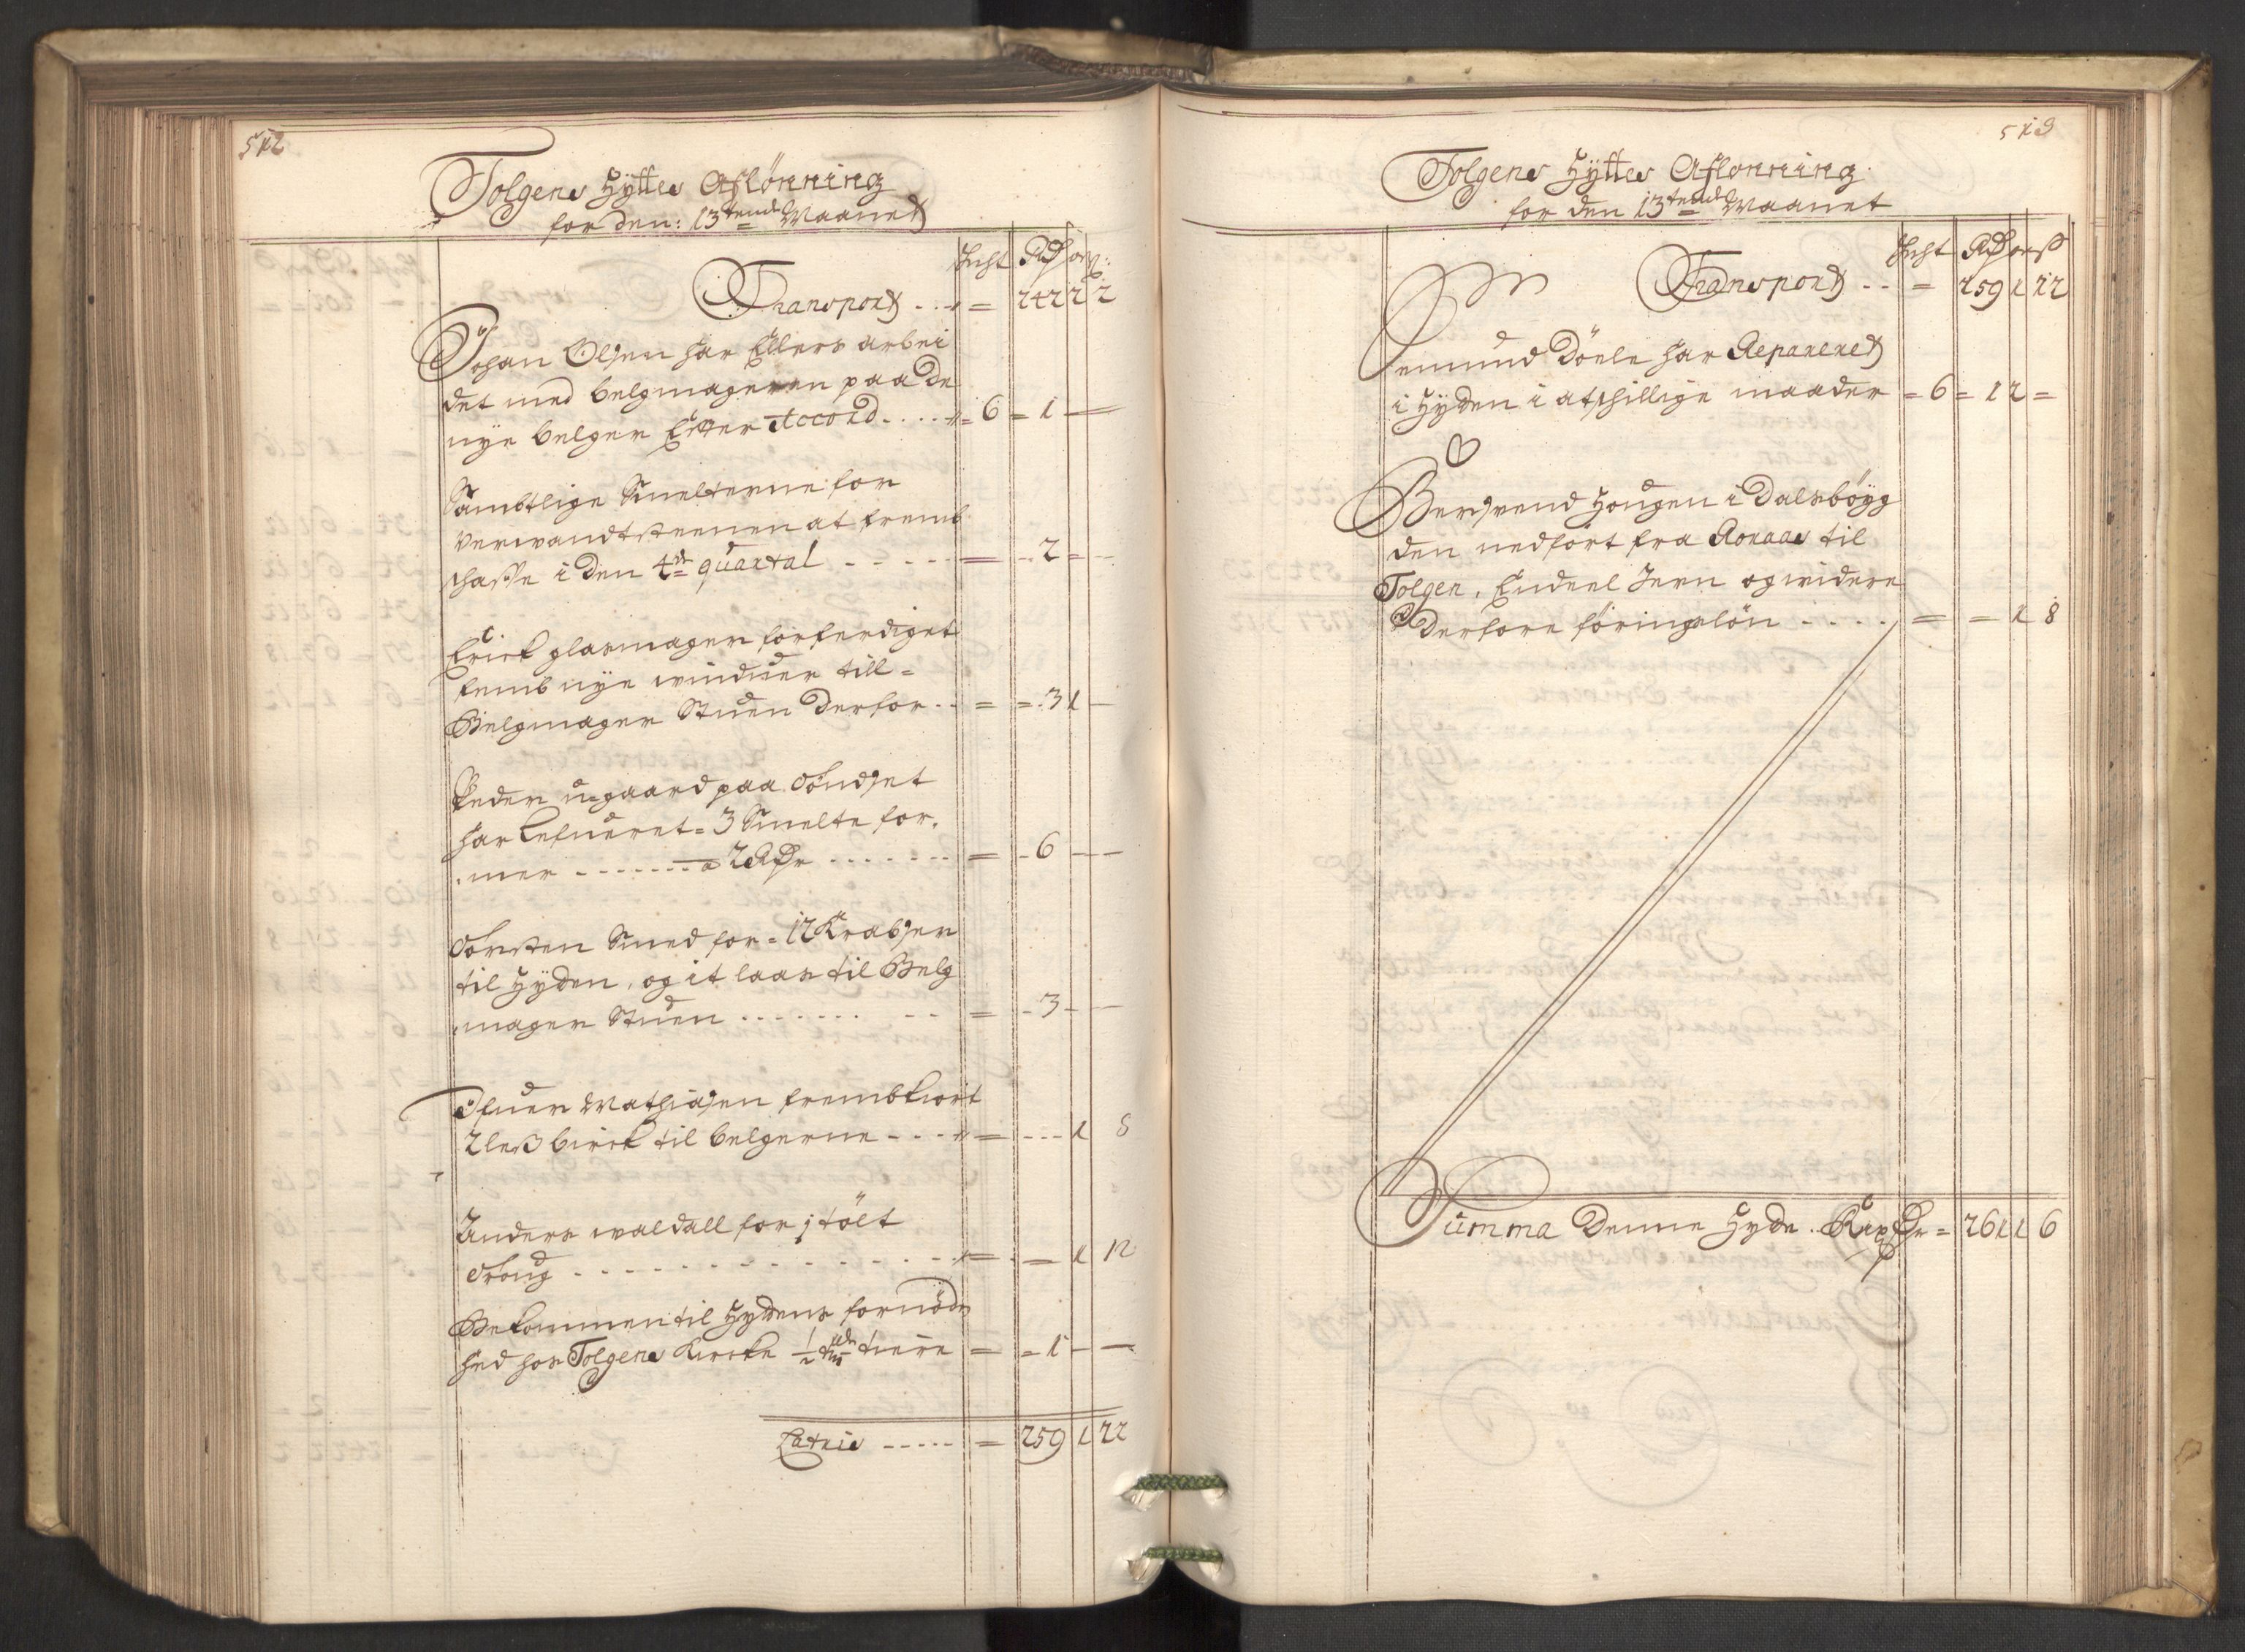 512
Tolgens Hyttes Aflønning
for den: 13tende Maanet
Sicht Rdr ort ß:
Transport . . . = 242 2 2
Johan Olsen har Ellers arbei
det med belgmageren paa De
nye belger Efter Accord . . . . = 6 = 1 —
Samtlige Smelterne for
Verwandtsteenen at fremb
schaffe i den 4de quartal - - - - = - 2 = -
Erick glasmager forferdiget
femb nye winduer till =
Belgmager Stuen Derfor - - = = 3 1 —
Peder ugaard paa Tøndset
har Lefueret = 3 Smelte for,
, mer - - - - - a 2 Rdr - - - - - = - 6 — —
Torsten Smed for = 12 Krabser
til Hyden, og it laas til Belg
, mager Stuen . . . . . . . - - = - 3 - —
Ofuer Mathiasen frembkiørt
2 leß birck til belgerne - - - = - - - 1 8
Anders waldall for j tølt
Troug - - - - - - - - - = - = 1 12
Bekommen til Hydens fornøden
hed hos Tolgens Kircke ½ tde tiere = = 1 — —
Latris - - - - - = 259 1 22
513
Tolgens Hyttes Aflønning
for den 13tende Maanet
Sicht Rdr ort ß
Transport - - = 259 1 22
emund Döele har Repareret
i Hyden i atschillige maader = 6 = 1 2 =
Bersvend Hougen i Dalsbøyg
den nedført fra Roraas til
Tolgen, Endeel Jern og widere
Derfore føringsløn - - - . = = 1 8
Summa Denne Hyde . Rixdr = 261 1 6